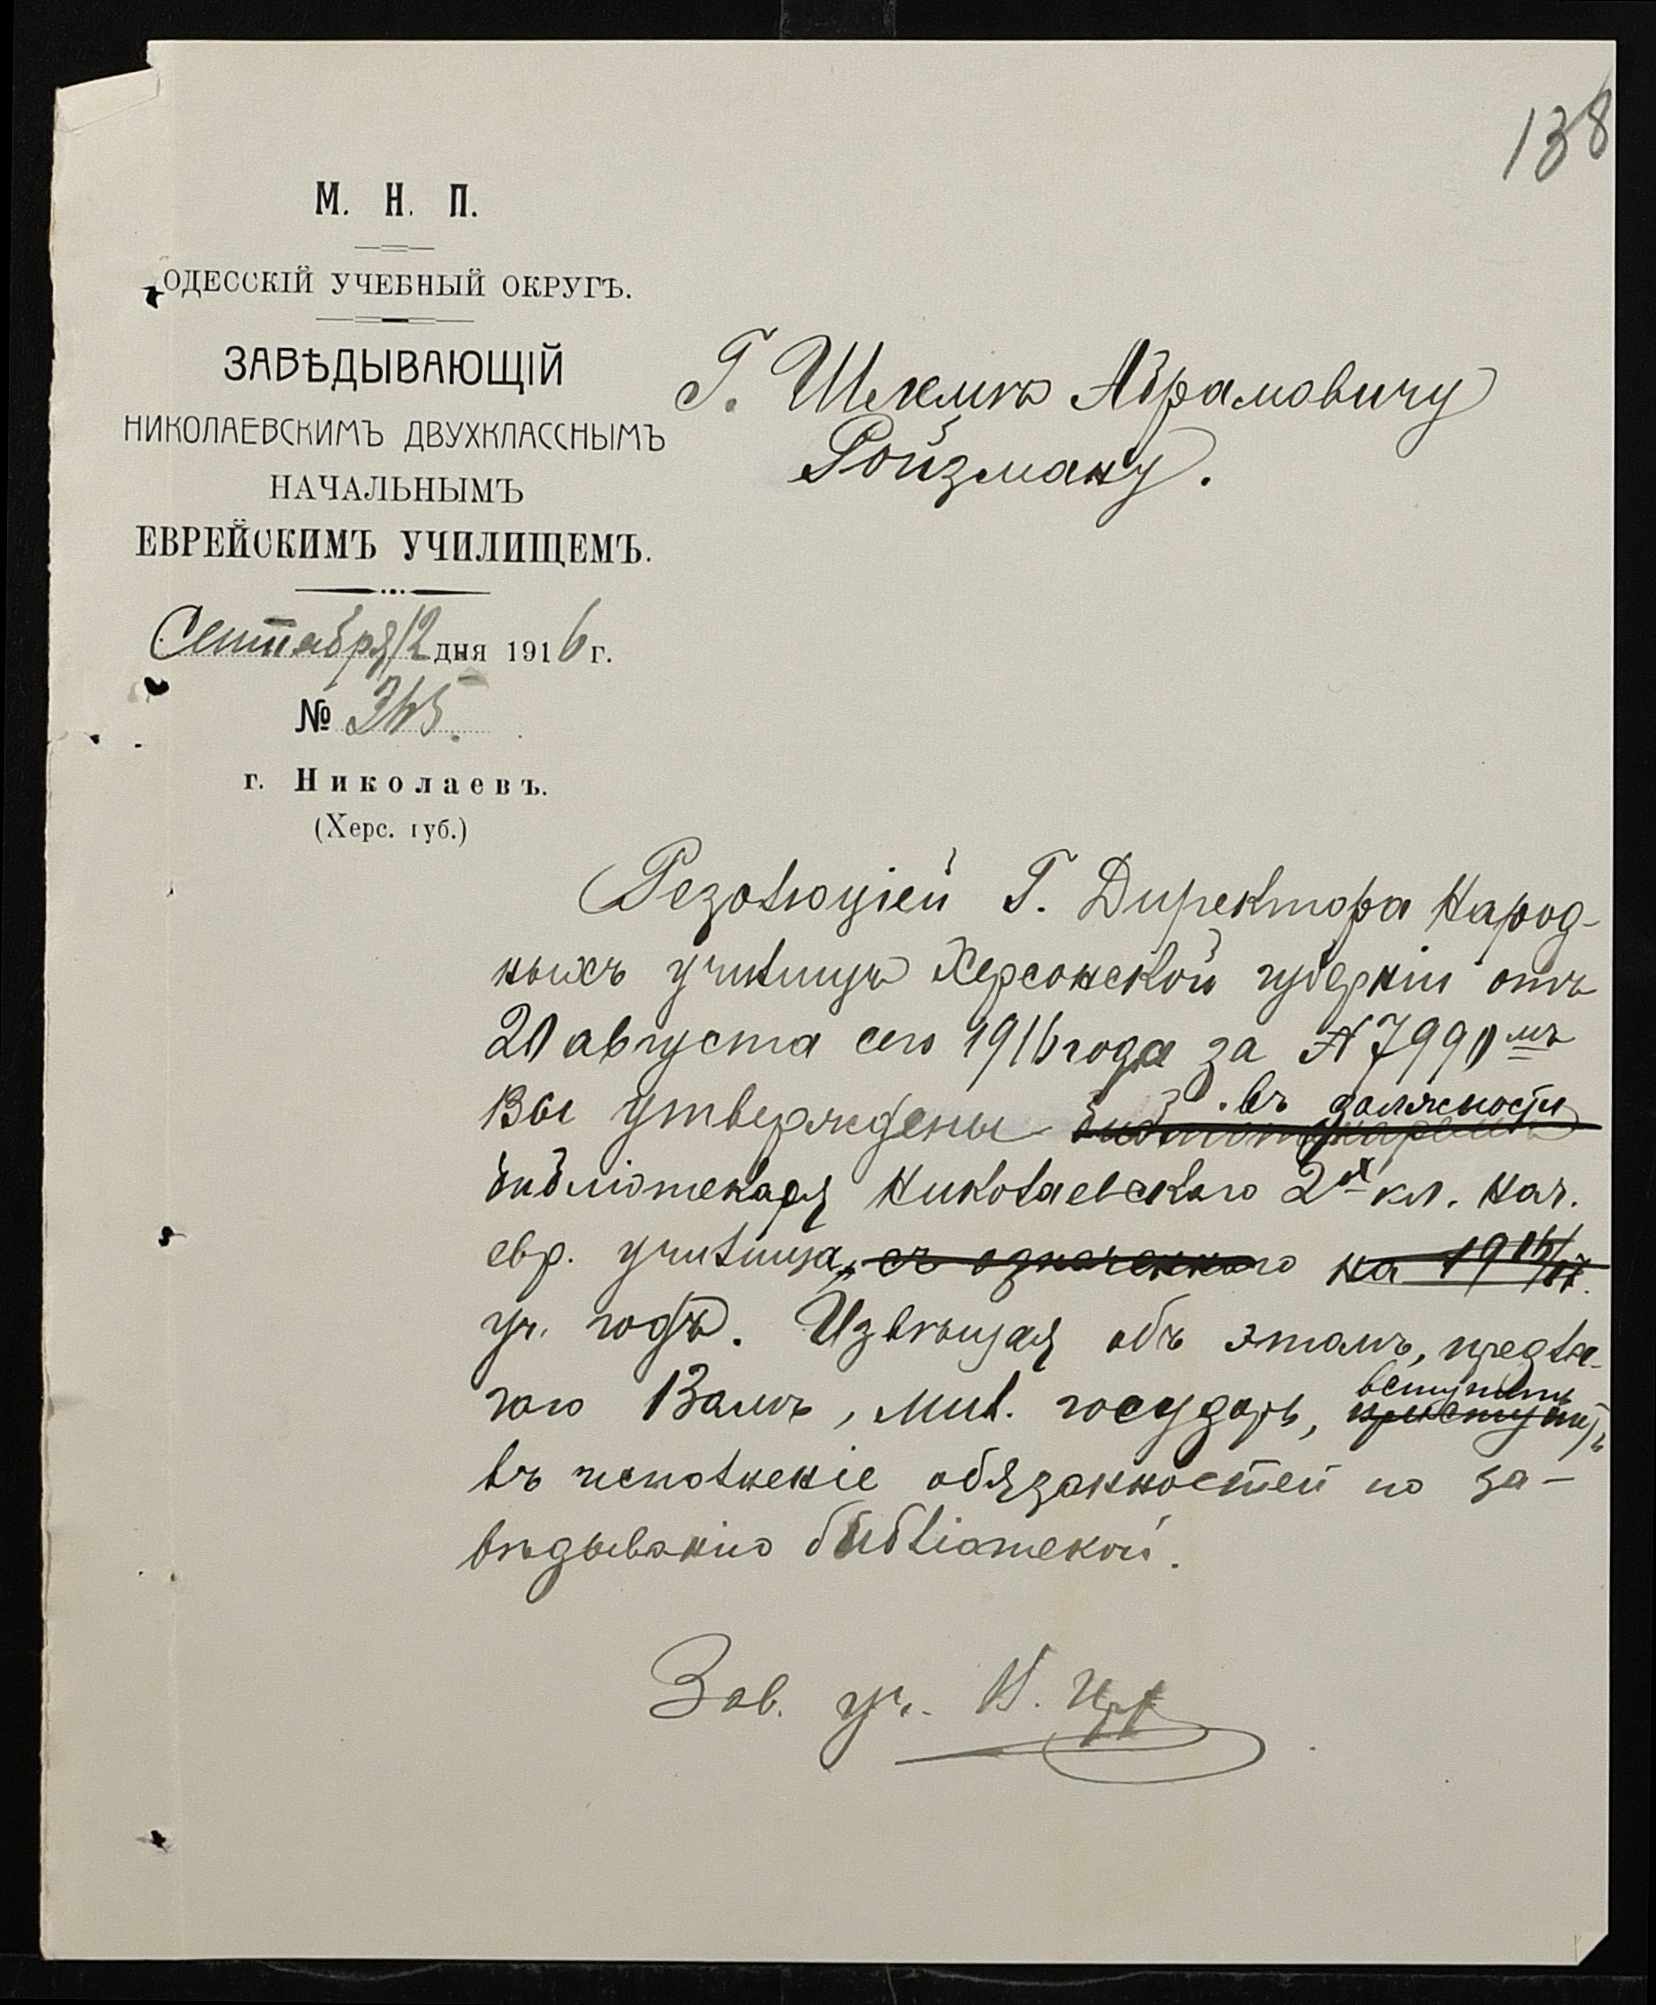 138
М. Н. П.
ОДЕССКІЙ УЧЕБНЫЙ ОКРУГЪ.
ЗАВѢДЫВАЮЩІЙ
НИКОЛАЕВСКИМЪ ДВУХКЛАССНЫМЪ
НАЧАЛЬНЫМЪ
ЕВРЕЙСКИМЪ УЧИЛИЩЕМЪ.
Сентября 12 дня 1916 г.
№ 345.
г. Николаевъ.
(Херс. губ.)
Г. Шлемѣ Абрамовичу
Ройзману.
Резолюціей Г. Директора Народ-
ныхъ училищъ Херсонской губерніи отъ
20 августа сего 1916 года за № 7990 мъ
въ должности
Вы утверждены
библіотекаря Николаевскаго 2х кл. нач.
евр. училища, съ означеннаго на 1916/17.
уч. годъ. Извѣщая объ этомъ, предла-
вступить
гаю Вамъ, мил. государь, приступить
въ исполненіе обязанностей по за-
вѣдыванію библіотекой.
Зав. уч.